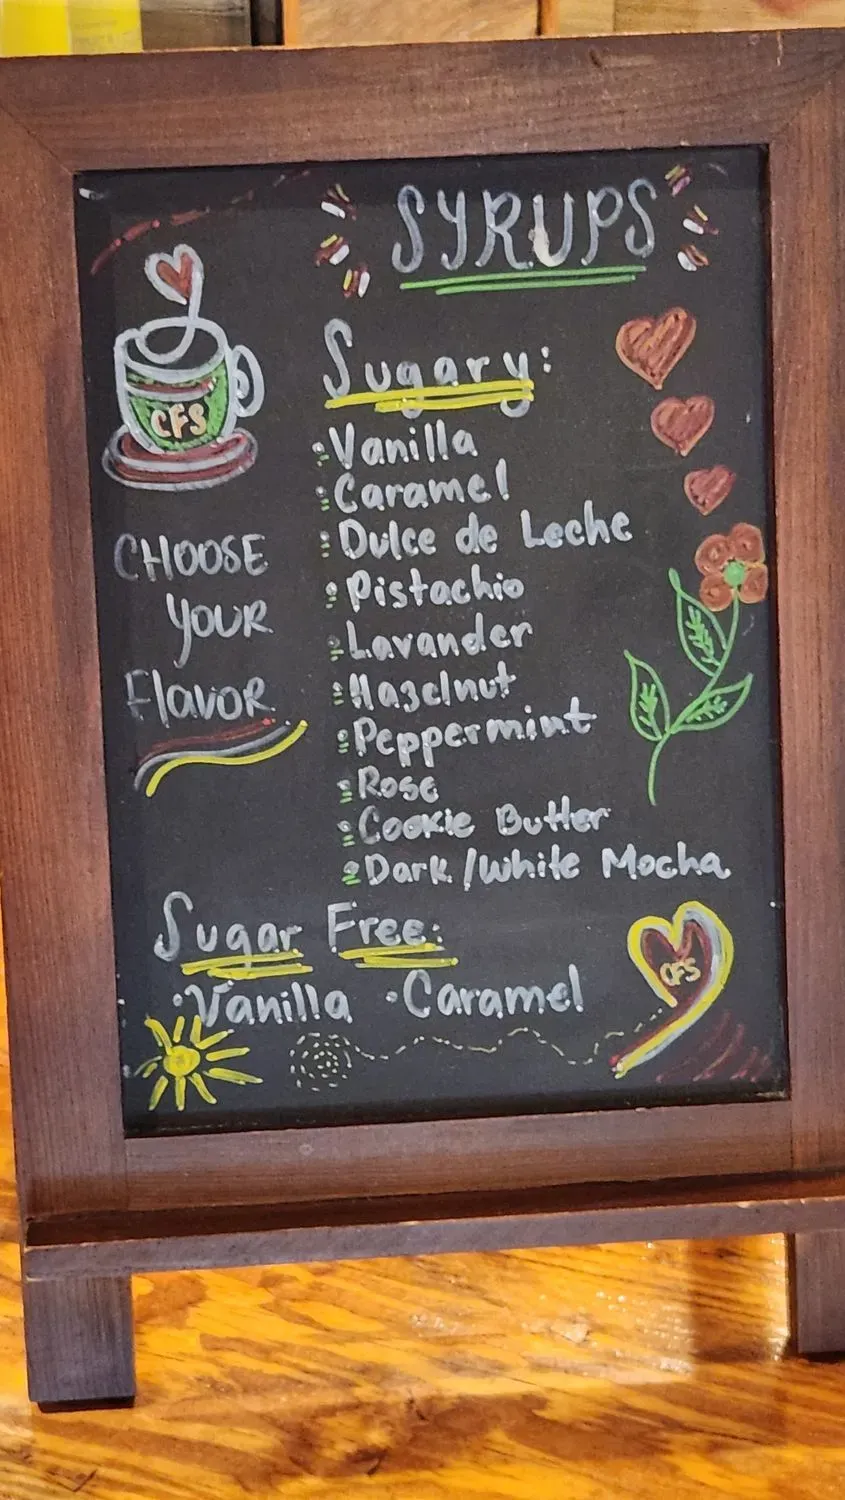 SYRUPS
Sugary:
CFS
Vanilla
Caramel
Dulce de Leche
Pistachio
Lavander
Hazelnut
Peppermint
Rose
Cookie Butter
Dark/White Mocha
CHOOSE
YOUR
Flavor
Sugar Free:
·Vanilla ·Caramel
CFS